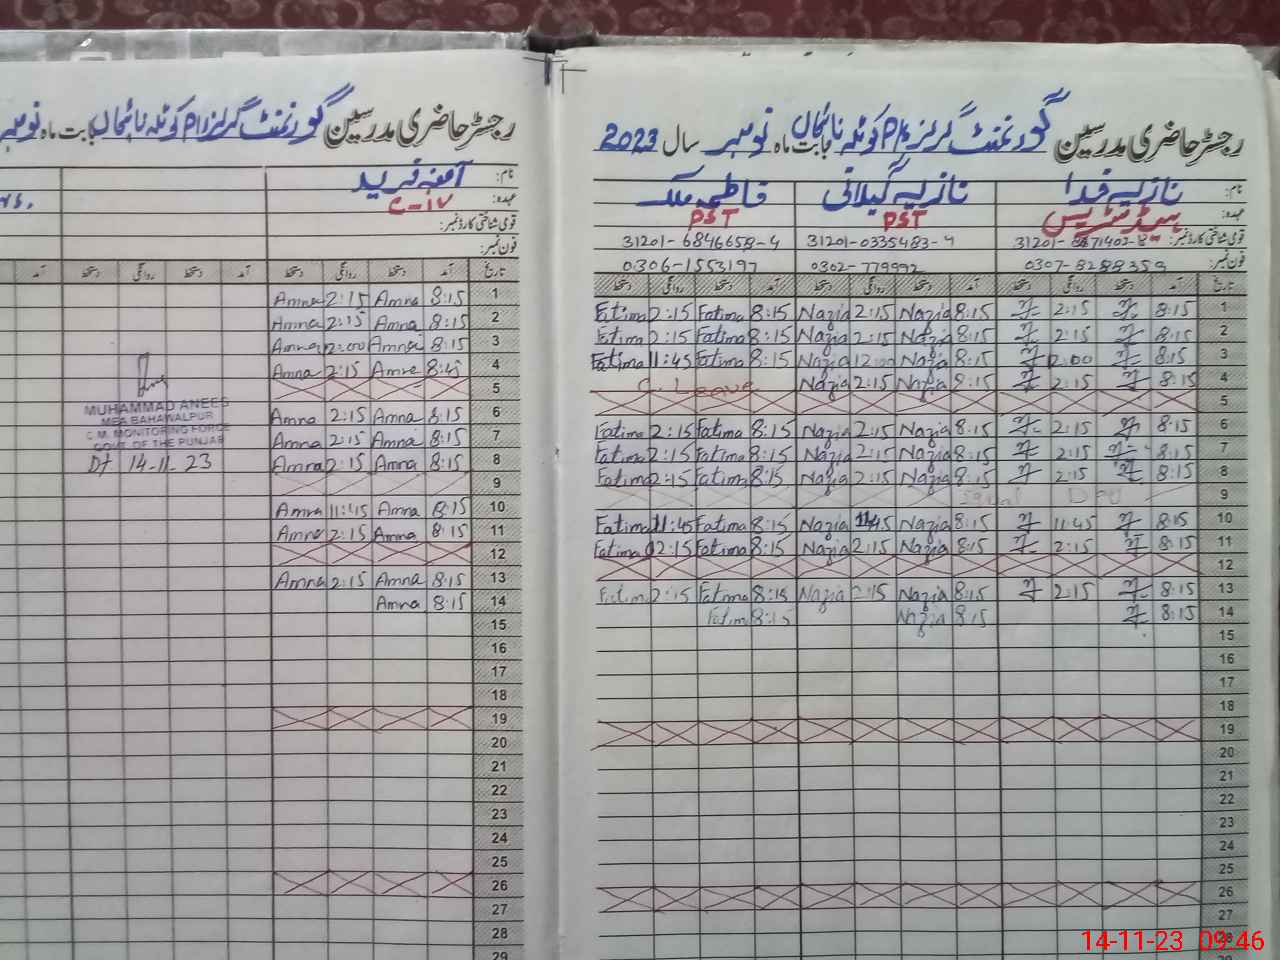 رجسٹر حاضری مدرسین گورنمنٹ گرلز P/S کوٹلہ نانجال بابت ماہ نومبر سال 2023
نام: نازیہ فدا نازیہ گیلانی فاطمہ ملک
عہدہ: ہیڈمسٹریس PST PST
قومی شناختی کارڈ نمبر: 31201-0335483-4 31201-6846658-4
فون نمبر: 0307-8288359 0302-779992 0306-1553197
تاریخ آمد دستخط روانگی دستخط آمد دستخط روانگی دستخط آمد دستخط روانگی دستخط
1 8:15 2:15 8:15 Nazia 2:15 Nazia 8:15 Fatima 2:15 Fatima
2 8:15 2:15 8:15 Nazia 2:15 Nazia 8:15 Fatima 2:15 Fatima
3 8:15 12:00 8:15 Nazia 12:00 Nazia 8:15 Fatima 11:45 Fatima
4 8:15 2:15 8:15 Nazia 2:15 Nazia C. Leave
5
6 8:15 2:15 8:15 Nazia 2:15 Nazia 8:15 Fatima 2:15 Fatima
7 8:15 2:15 8:15 Nazia 2:15 Nazia 8:15 Fatima 2:15 Fatima
8 8:15 2:15 8:15 Nazia 2:15 Nazia 8:15 Fatima 2:15 Fatima
9 Iqbal Day
10 8:15 11:45 8:15 Nazia 11:45 Nazia 8:15 Fatima 11:45 Fatima
11 8:15 2:15 8:15 Nazia 2:15 Nazia 8:15 Fatima 2:15 Fatima
12
13 8:15 2:15 8:15 Nazia 2:15 Nazia 8:15 Fatima 2:15 Fatima
14 8:15 8:15 Nazia 8:15 Fatima
15
16
17
18
19
20
21
22
23
24
25
26
27
28
رجسٹر حاضری مدرسین گورنمنٹ گرلز P/S کوٹلہ نانجال بابت ماہ نومبر
نام: آمنہ فرید
عہدہ:
قومی شناختی کارڈ نمبر:
فون نمبر:
تاریخ آمد دستخط روانگی دستخط آمد دستخط روانگی دستخط آمد
1 8:15 Amna 2:15 Amna
2 8:15 Amna 2:15 Amna
3 8:15 Amna 12:00 Amna
4 8:45 Amna 2:15 Amna
5
6 8:15 Amna 2:15 Amna
7 8:15 Amna 2:15 Amna
8 8:15 Amna 2:15 Amna
9
10 8:15 Amna 11:45 Amna
11 8:15 Amna 2:15 Amna
12
13 8:15 Amna 2:15 Amna
14 8:15 Amna
15
16
17
18
19
20
21
22
23
24
25
26
27
28
29
MUHAMMAD ANEES
MEA BAHAWALPUR
C.M. MONITORING FORCE
GOVT. OF THE PUNJAB
Dt 14-11-23
14-11-23 09:46